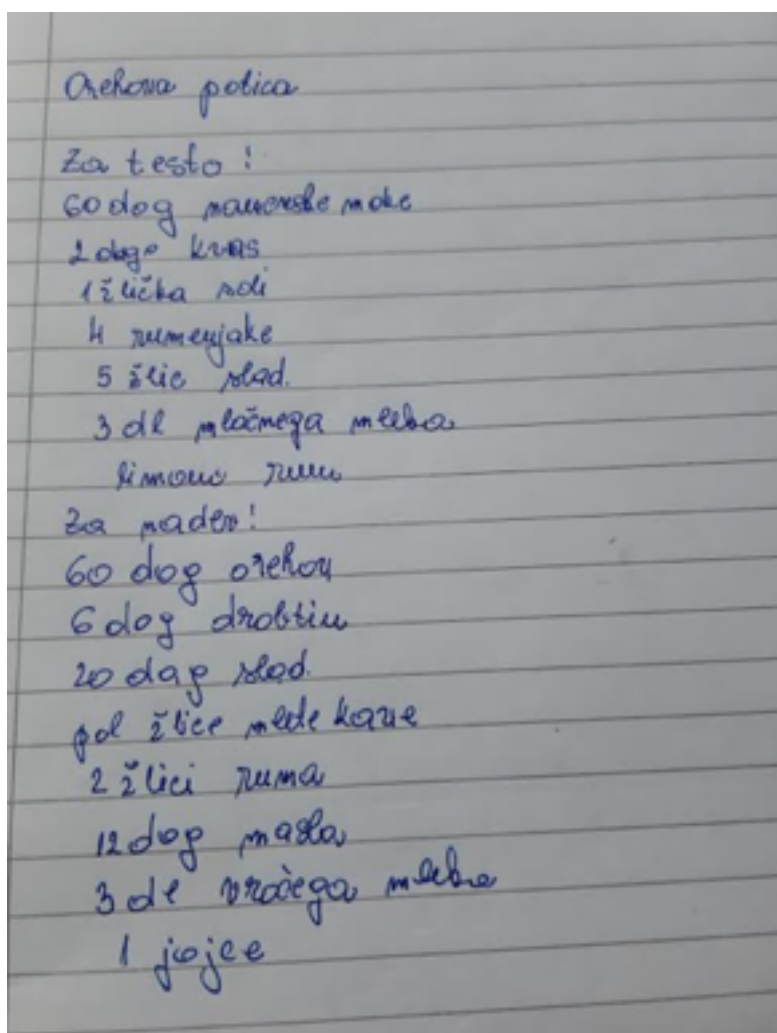 Orehova potica
Za testo!
60 dag moke
2 dag kvas
1 žlička soli
4 rumenjake
5 žlic slad.
3 dl mlačnega mleka
limono rum
Za nadev!
60 dag orehov
6 dag drobtin
20 dag slad.
pol žlice mlete kave
2 žlici ruma
12 dag masla
3 dl vročega mleka
1 jajce